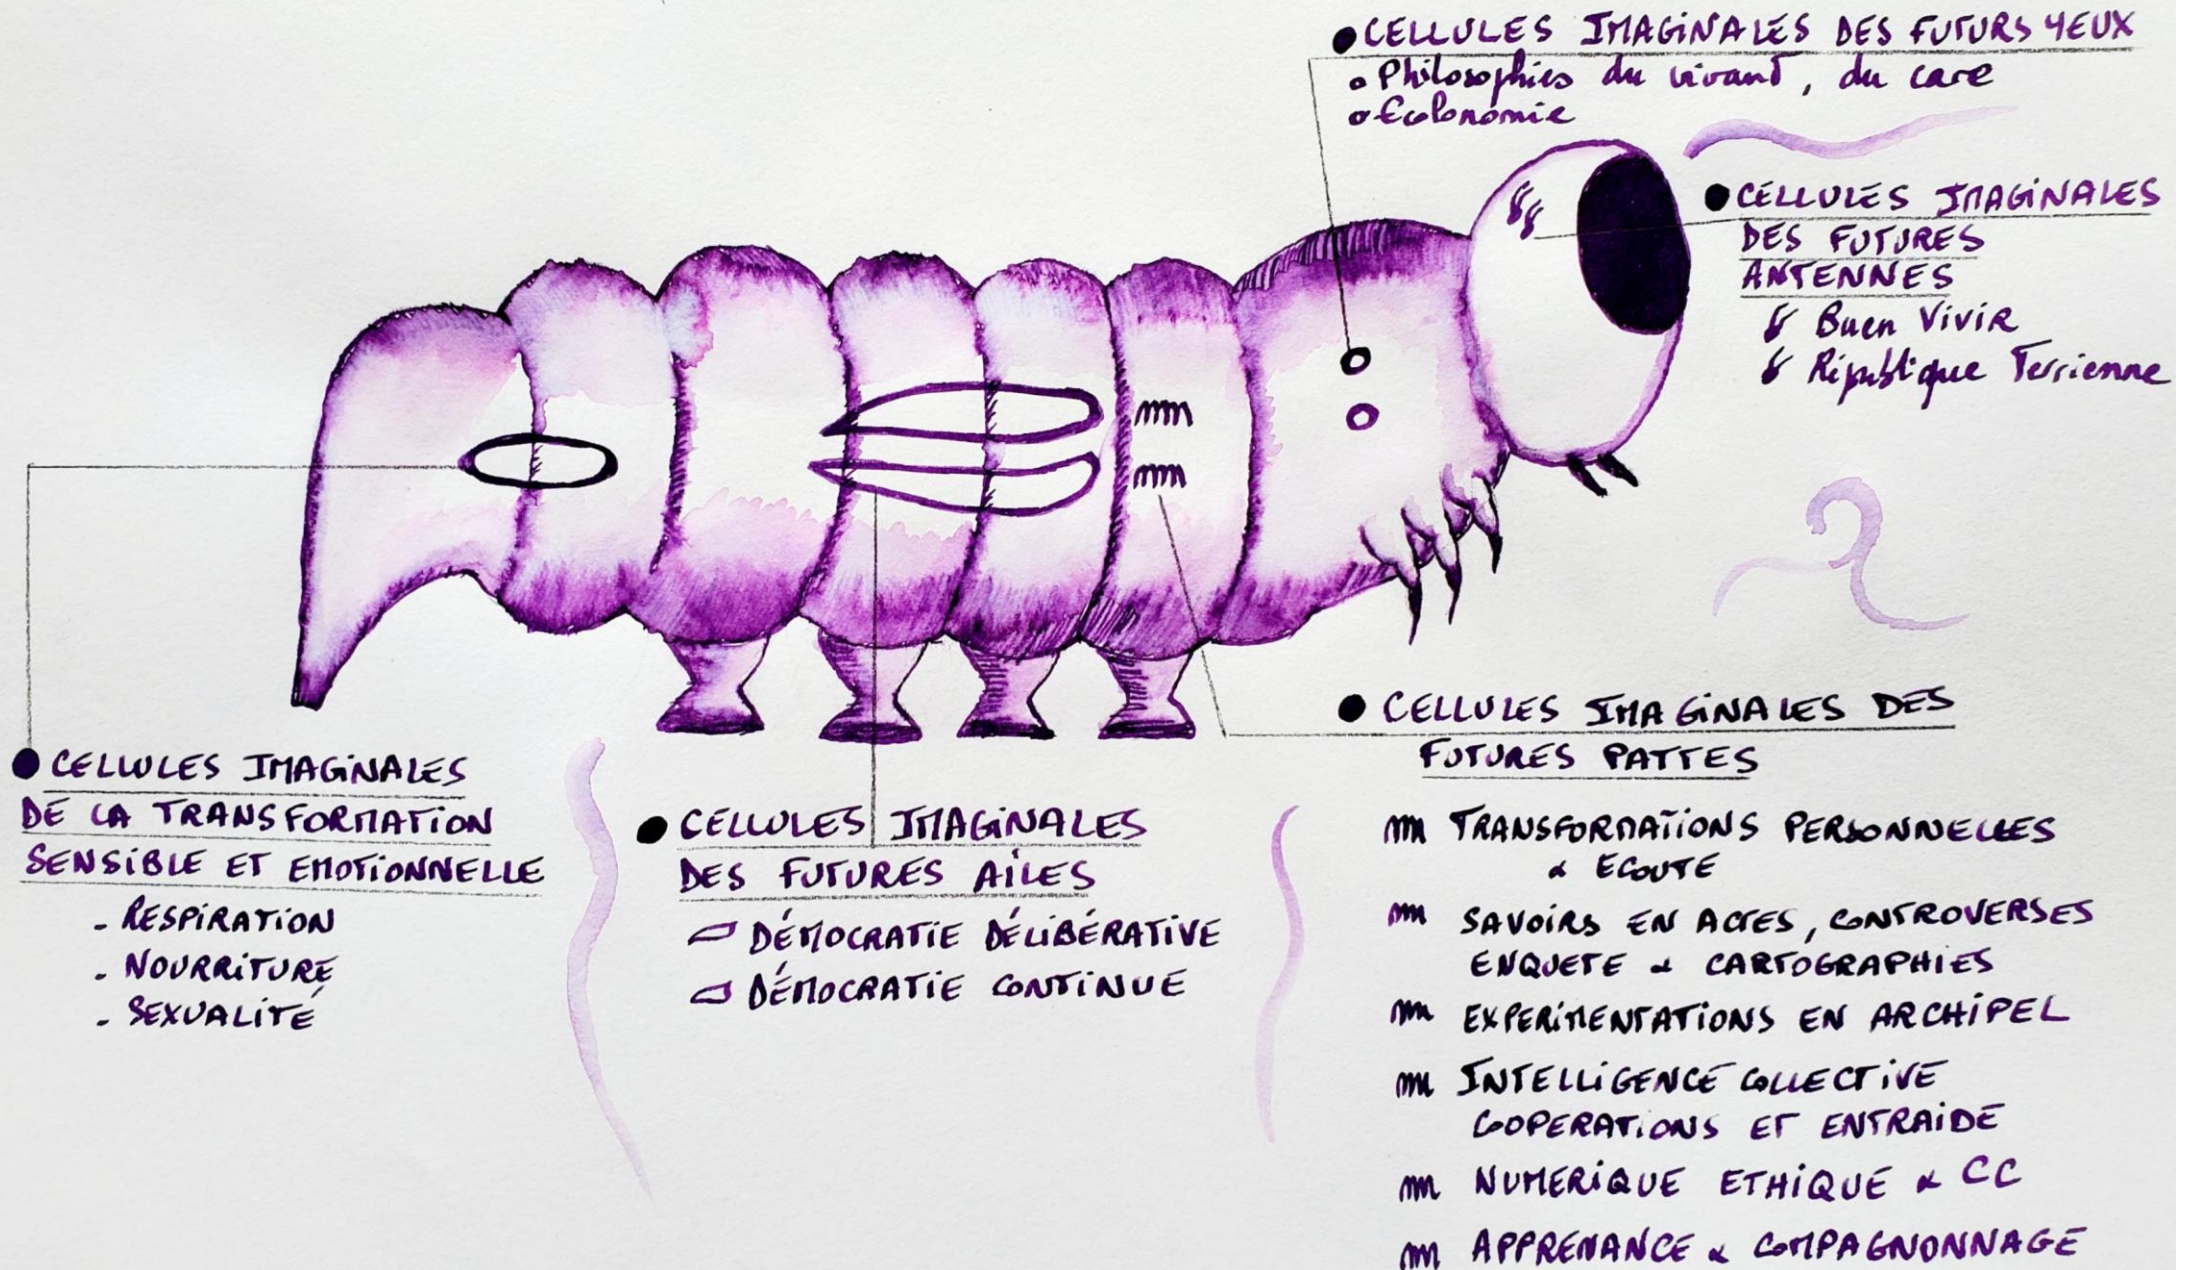 CELLULES IMAGINALES DES FUTURS YEUX
Philosophies du vivant, du care
Ecolonomie
CELLULES IMAGINALES
DES FUTURES
ANTENNES
Buen Vivir
République Terrienne
CELLULES IMAGINALES
DE LA TRANSFORMATION
SENSIBLE ET EMOTIONNELLE
- RESPIRATION
- NOURRITURE
- SEXUALITÉ
CELLULES IMAGINALES
DES FUTURES AILES
DÉMOCRATIE DÉLIBÉRATIVE
DÉMOCRATIE CONTINUE
CELLULES IMAGINALES DES
FUTURES PATTES
TRANSFORMATIONS PERSONNELLES
& ECOUTE
SAVOIRS EN ACTES, CONTROVERSES
ENQUETE & CARTOGRAPHIES
EXPERIMENTATIONS EN ARCHIPEL
INTELLIGENCE COLLECTIVE
COOPERATIONS ET ENTRAIDE
NUMERIQUE ETHIQUE & CC
APPRENANCE & COMPAGNONNAGE